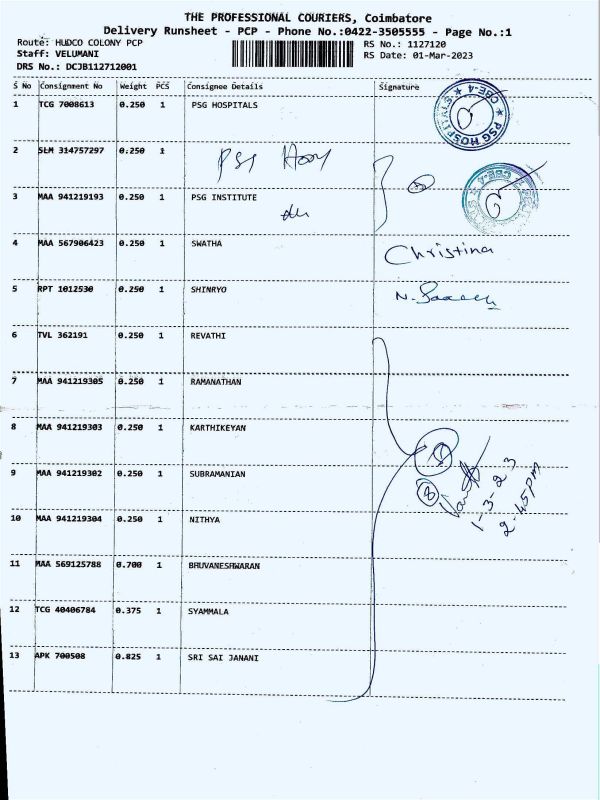 THE PROFESSIONAL COURIERS, Coimbatore
Delivery Runsheet - PCP - Phone No.:0422-3505555 - Page No.:1
Route: HUDCO COLONY PCP
Staff: VELUMANI
DRS No.: DCJB112712001
RS No.: 1127120
RS Date: 01-Mar-2023
S No Consignment No Weight PCS Consignee Details Signature
1 TCG 7008613 0.250 1 PSG HOSPITALS
PSG HOSPITALS
CBE-4
2 SLM 314757297 0.250 1 PSG
3 MAA 941219193 0.250 1 PSG INSTITUTE
CBE-4
4 MAA 567906423 0.250 1 SWATHA Christina
5 RPT 1012530 0.250 1 SHINRYO
6 TVL 362191 0.250 1 REVATHI
7 MAA 941219305 0.250 1 RAMANATHAN
8 MAA 941219303 0.250 1 KARTHIKEYAN
9 MAA 941219302 0.250 1 SUBRAMANIAN
8
1-3-23
2-45PM
10 MAA 941219304 0.250 1 NITHYA
11 MAA 569125788 0.700 1 BHUVANESHWARAN
12 TCG 40406784 0.375 1 SYAMMALA
13 APK 700508 0.825 1 SRI SAI JANANI